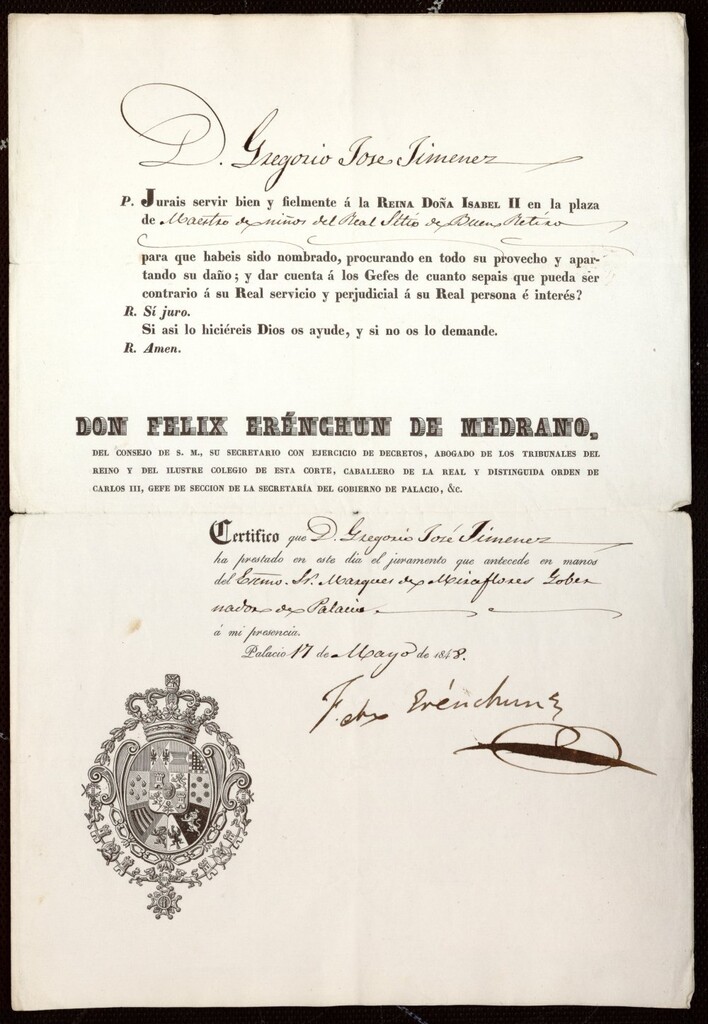 D. Gregorio Jose Jimenez
P. Jurais servir bien y fielmente á la REINA DOÑA ISABEL II en la plaza
de Maestro de niños del Real Sitio de Buen Retiro
para que habeis sido nombrado, procurando en todo su provecho y apar-
tando su daño; y dar cuenta á los Gefes de cuanto sepais que pueda ser
contrario á su Real servicio y perjudicial á su Real persona é interés?
R. Sí juro.
Si asi lo hiciéreis Dios os ayude, y si no os lo demande.
R. Amen.
DON FELIX ERÉNCHUN DE MEDRANO,
DEL CONSEJO DE S. M., SU SECRETARIO CON EJERCICIO DE DECRETOS, ABOGADO DE LOS TRIBUNALES DEL
REINO Y DEL ILUSTRE COLEGIO DE ESTA CORTE, CABALLERO DE LA REAL Y DISTINGUIDA ORDEN DE
CARLOS III, GEFE DE SECCION DE LA SECRETARÍA DEL GOBIERNO DE PALACIO, &C.
Certifico que D. Gregorio José Jimenez
ha prestado en este dia el juramento que antecede en manos
del Excmo. Sr. Marques de Miraflores Gober
nador de Palacio
á mi presencia.
Palacio 17 de Mayo de 1848.
Felix Erénchun